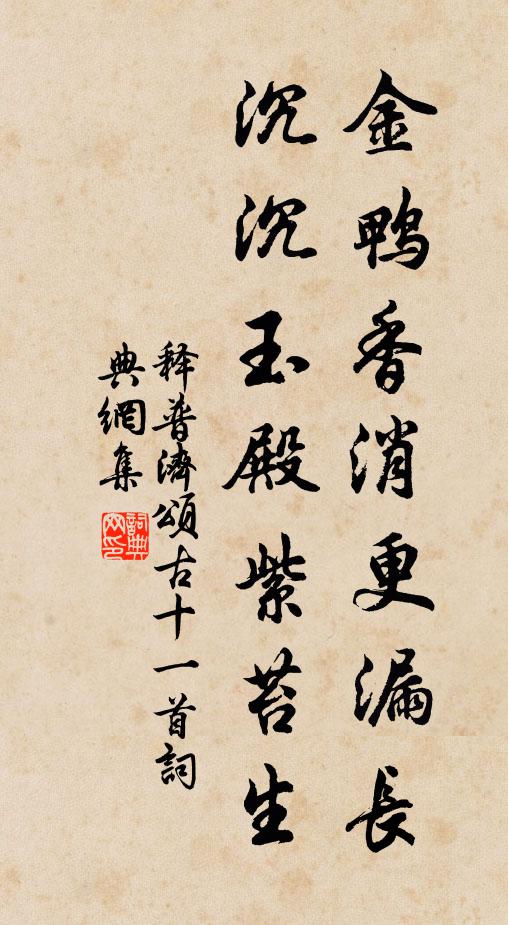 金鴨香消更漏長
沉沉玉殿紫苔生
釋普濟頌古十一首詞
典網集
詞典网印